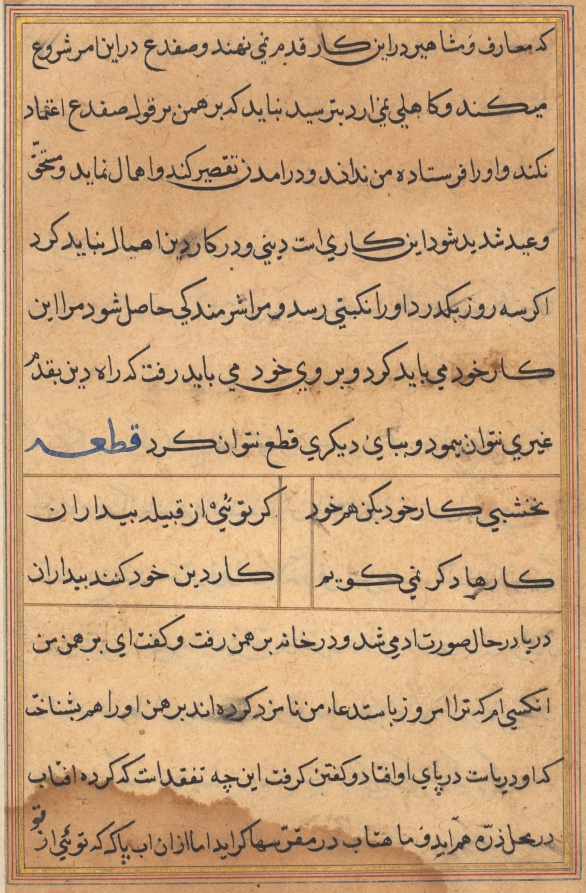 که معارف و مشاهیر در این کار قدم نمی نهند و صفدع در این امر شروع
میکند و کاهلی نمی ارد بترسید نباید که برهمن بر قول صفدع اعتماد
نکند و او را فرستاده من نداند و در امدن تقصیر کند و اهمال نماید و مستحق
وعید شدید شود این کاری است دینی و در کار دین اهمال نباید کرد
اکر سه روز بکدرد او را نکبتی رسد و مرا شرمندکی حاصل شود مرا این
کار خود می باید کرد و بر وی خود می باید رفت که راه دین بقدم
غیری نتوان پیمود و بپای دیکری قطع نتوان کرد قطعه
نخشبی کار خود بکن هم خود کر توئی از قبیله بیداران
کارها دکر نمی کویم کار دین خود کنند بیداران
دریا در حال صورت ادمی شد و در خانه برهمن رفت و کفت ای برهمن من
انکسی ام که ترا امروز باستدعاء من نامزد کرده اند برهمن او را هم بشناخت
که او دریاست در پای او افتاد و کفتن کرفت این چه تفقد است که کرده افتاب
در محل ذره هم اید و ماهتاب در مقر سها کراید اما از ان اب پاک که توئی از تو